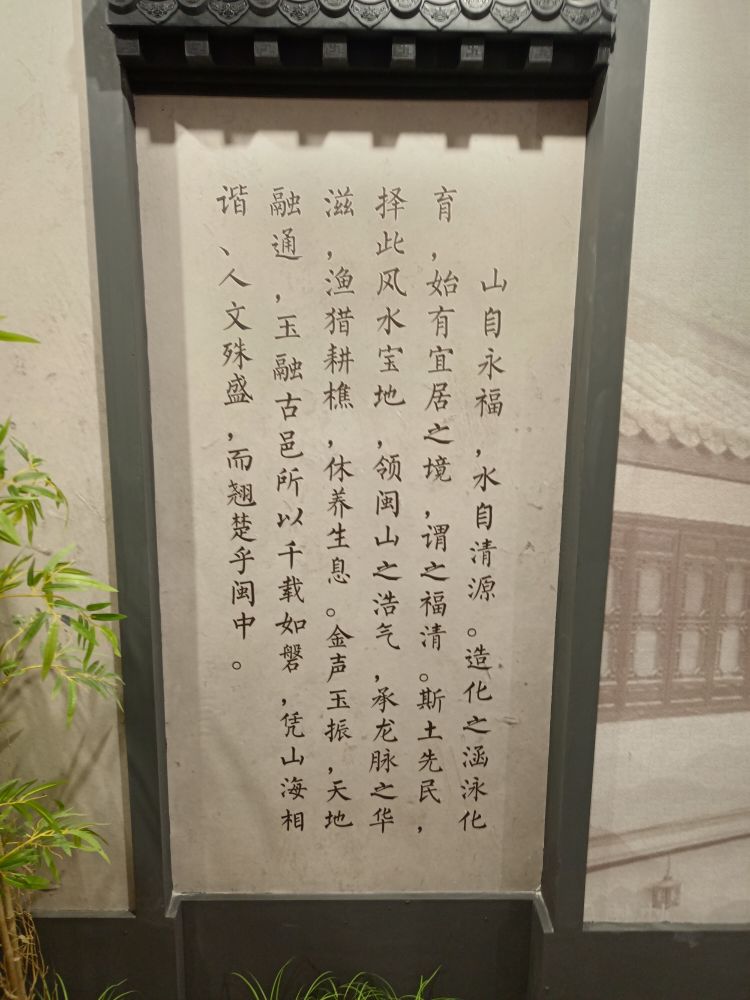 山自永福，水自清源。造化之涵泳化
育，始有宜居之境，谓之福清。斯土先民，
择此风水宝地，领闽山之浩气，承龙脉之华
滋，渔猎耕樵，休养生息。金声玉振，天地
融通，玉融古邑所以千载如磐，凭山海相
谐、人文殊盛，而翘楚乎闽中。